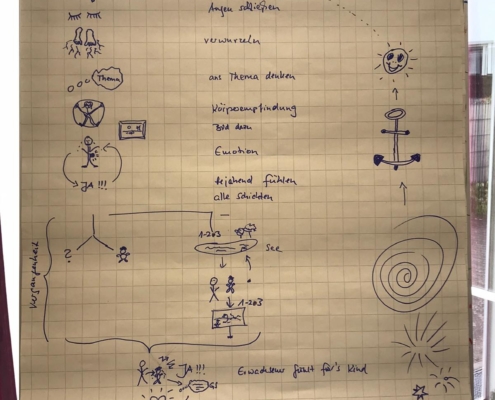 Augen schließen
verwurzeln
Thema
ans Thema denken
Körperempfindung
Bild dazu
Emotion
JA !!!
bejahend fühlen
alle schichten
1-2-3
See
?
1-2-3
Vergangenheit
JA !!!
Erwachsener fühlt für's Kind